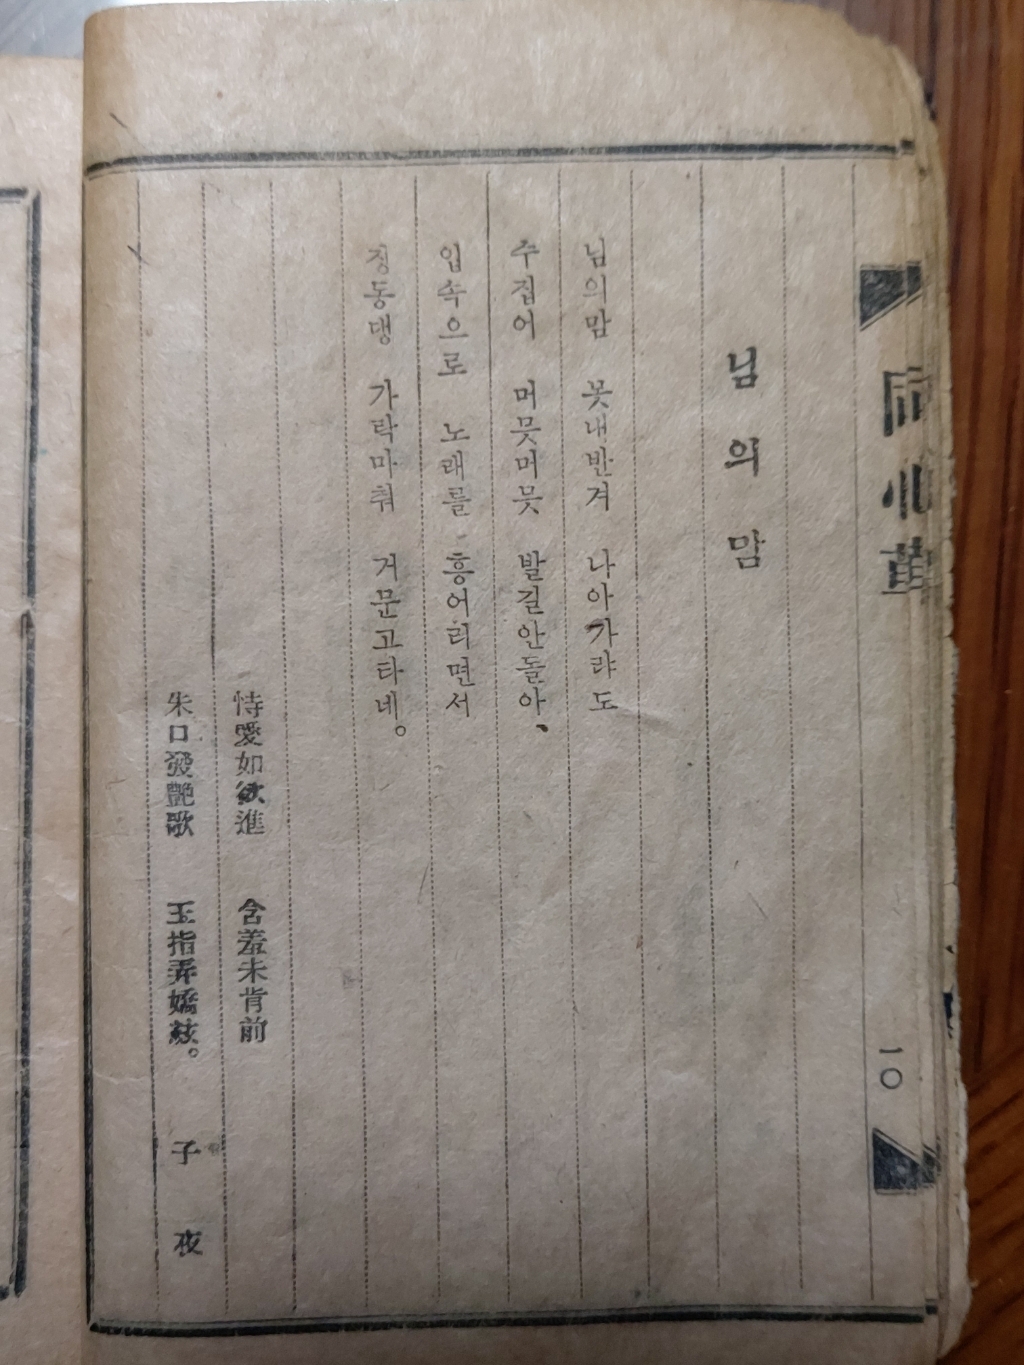 同心草
一〇
님의맘
님의맘 못내반겨 나아가랴도
수집어 머뭇머뭇 발길안돌아、
입속으로 노래를 흥어리면서
징동댕 가락마춰 거문고타네。
恃愛如欲進 含羞未肯前
朱口發艶歌 玉指弄嬌絃。
子夜